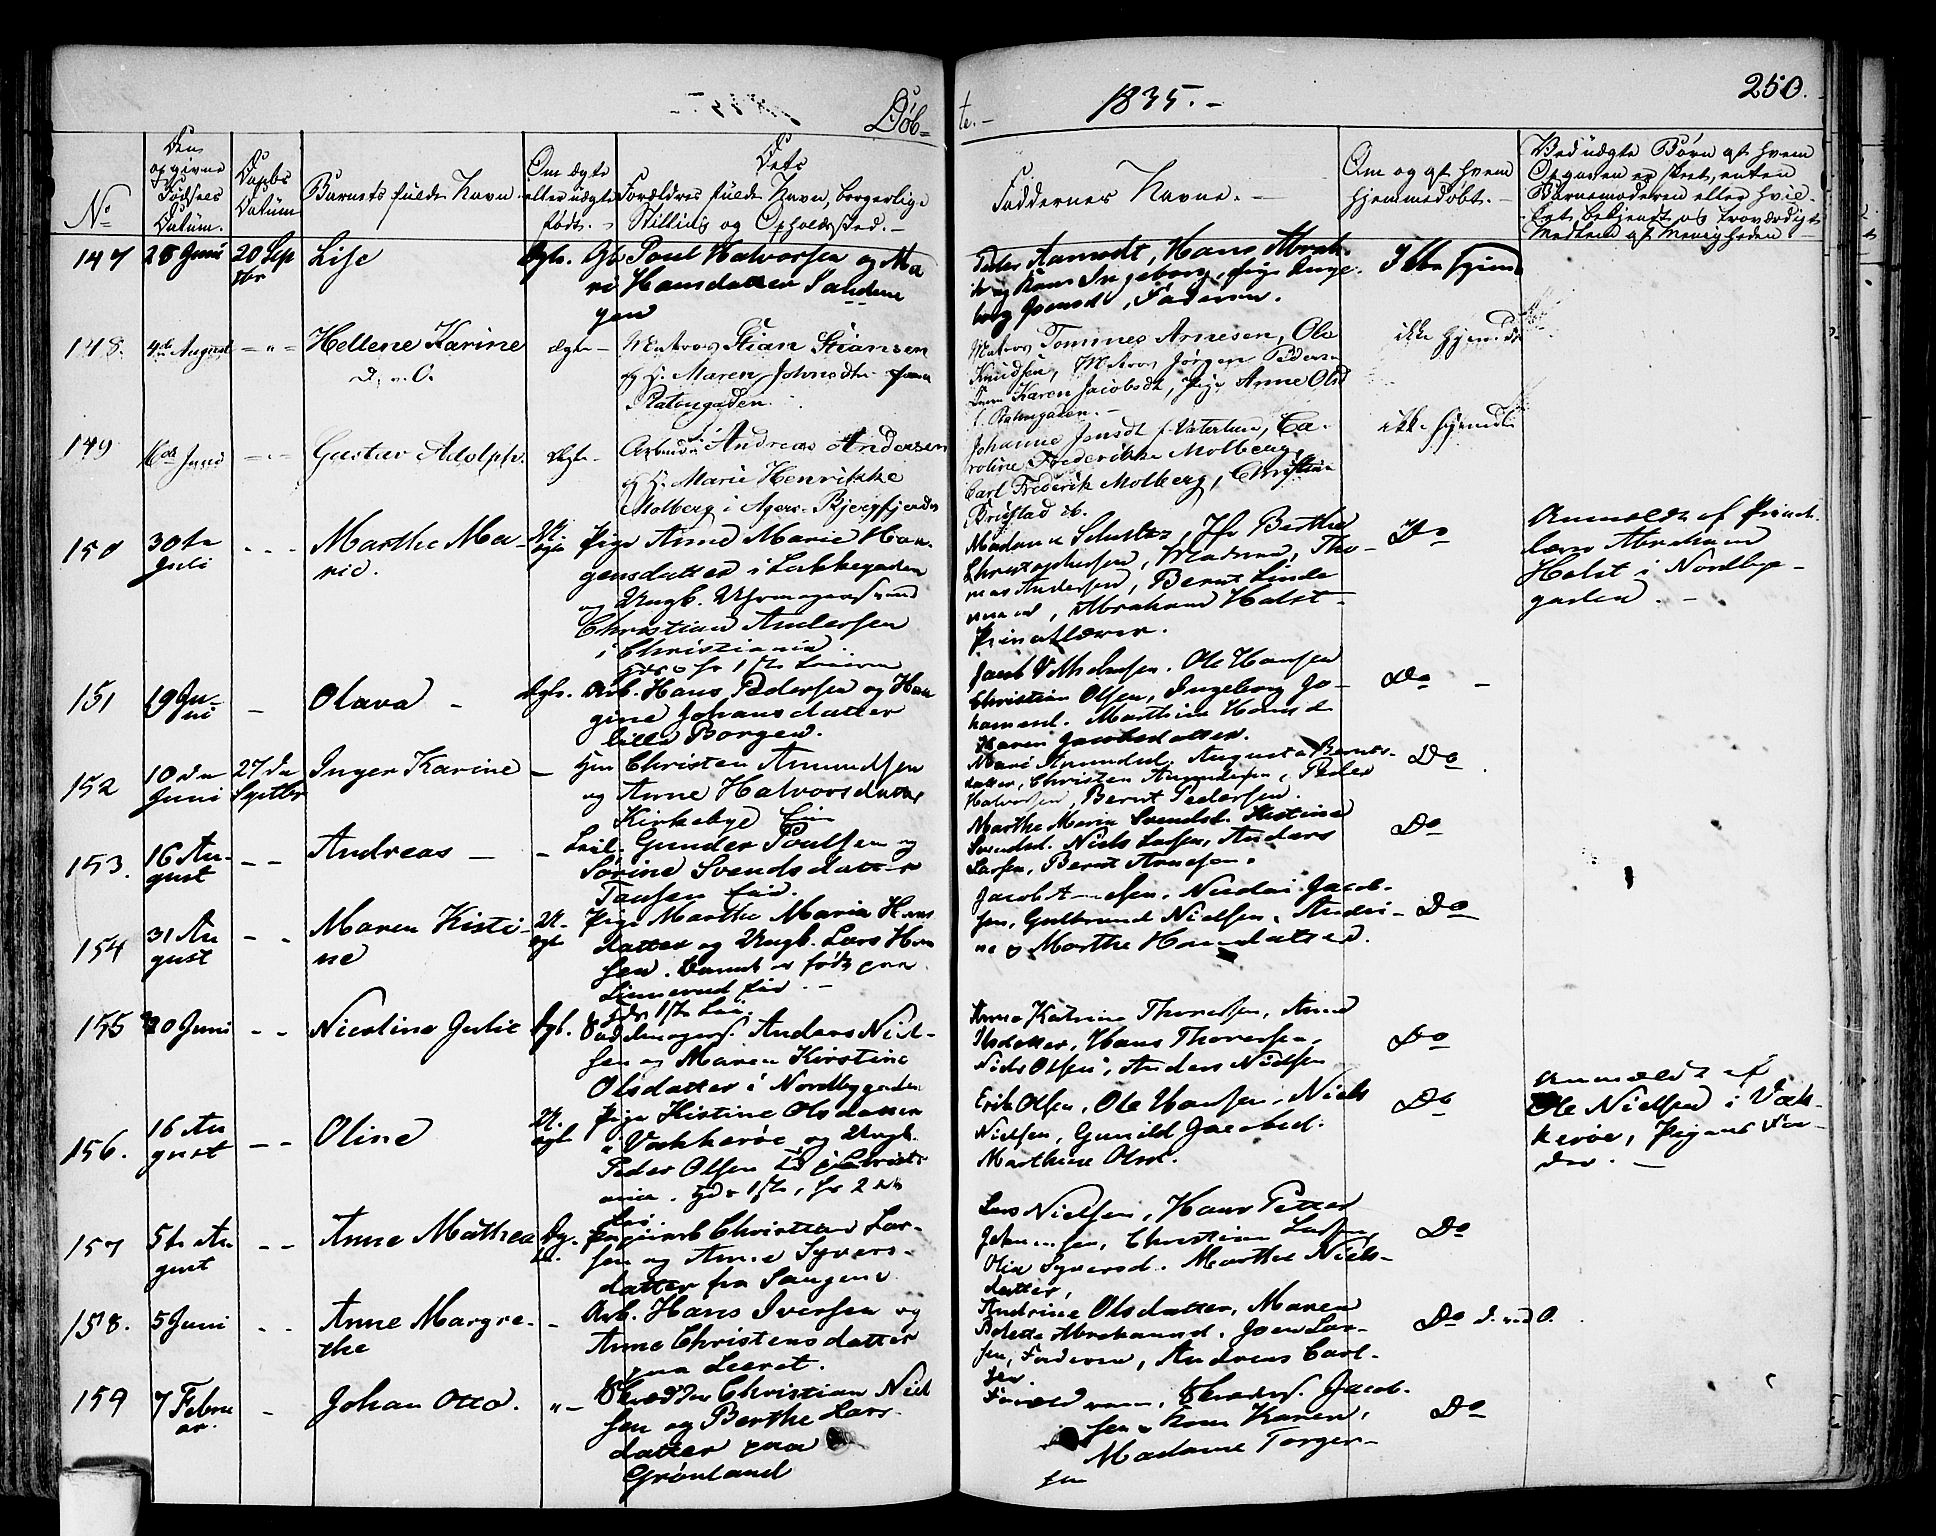 Døb-
te.-
1835.-
250.
No
Den
opgivne
Fødsels
Datum.
Daabs
Datum
Barnets fulde Navn.
Om ægte
eller uægte
født.-
Dets
Forældres fulde Navn, borgerlige
Stilling og Opholdssted.-
Faddernes Navne.-
Om og af hvem
hjemmedøbt.-
Ved uægte Børn af hvem
Opgaven er skeet, enten
Barnemoderen eller hvil-
ket bekjendt og troværdigt
Medlem af Menigheden
147
28 Juni
20 Sep
tbr
Lise
Paul Halvorsen og Ma
ri Hansdatter
Peder Aamodt, Hans Abrah-
Ingeborg, Pige Inge-
Faderen.
148.
4de August
Hellene Karine
d. v. O.
ægte-
Matros Stian Stiansen
og H. Maren
Matros Tommes Arnesen, Ole
Knudsen, Matros Jørgen Pedersen
Karen Jacobsdt, Pige Anne Olsd
ikke hjemdt
149
Juni
Gustav Adolph.
ægte-
Andreas Andersen
og H. Marie Henrikke
Molberg i Agers Bjergfjerding
Johanne Jensdt f. Vaterland, Ca-
roline Frederikke Molberg,
Carl Frederik Molberg, Christian
Brustad ib.
ikke hjemdt
150
30te
Juli
Marthe Ma-
rie.
U-
ægte
Pige Anne Marie Haa-
gensdatter i Lakkegaden
og Ungk. Uhrmagersvend
Christian Andersen
i Christiania
Madame Schultz, Jfr Berthe
Christophersen, Madame, Tho-
mas Andersen, Bernt Linde
mand, Abraham Holst
Privatlærer.
Do
Anmeldt af Privat-
lærer Abraham
Holst i Nordbye-
gaden.-
151
19 Ju-
ni
Olava
Ægte.
Arb. Hans Pedersen og Han
gine Johansdatter
lille Borgen.
Jacob Vilhelmsen. Ole Hansen
Christian Olsen, Ingeborg Jo-
hannesd. Marthine Hansd
Karen Jacobsdatter.
Do -
152
10de
Juni
27de
Septbr
Inger Karine
Christen Amundsen
og Anne Halvorsdatter
Kirkebye Eie
Mari Amundsd, Augusta Bernts-
datter, Christen Amundsen, Peder
Halvorsen, Bernt Pedersen.
Do
153.
16 Au-
gust
Andreas
Gunder Poulsen og
Sørine Svendsdatter
Taasen Eie.
Marthe Maria Svendsd. Kistine
Svendsd. Niels Larsen, Anders
Larsen, Bernt Arnesen.
Do
154
31 Au
gust
Maren Kisti-
ne
U-
ægte
Pige Marthe Maria Hans
datter og Ungk. Lars Han
sen. Barnet er født paa
Linnerud Eie.-
sen, Gulbrand Nielsen, Andri-
ne og Marthe Hansdatter.
Do
155
20 Juni
Nicoline Julie
Ægt.
Sadelmagers. Anders Niel-
sen og Maren Kirstine
Olsdatter i Nordbygaden
Anne Katrine Thoresen, Anne
Olsdatter, Hans Thoresen,
Niels Olsen, Anders Nielsen
Do
156.
16 Au
gust
Oline
U-
ægt.
Pige Kistine Olsdatter
i Vækkerøe og Ungk.
Peder Olsen i Christi
ania.
Erik Olsen, Ole Hansen, Niels
Nielsen, Gunild Jacobsd.
Marthine Olsd.
Do
Anmeldt af
Ole Nielsen i Væk-
kerøe, Pigens Fa-
der.-
157
5te Au
gust
Anne Mathea
Christian Lar-
sen og Anne Syvers-
datter fra Saugene
Lars Nielsen, Hans Petter
Christian Larsen,
Oline Syversd. Marthe Niels-
datter,
Do
158.
5 Juni
Anne Margre-
the
Arb. Hans Iversen og
Anne Christensdatter
paa Leeret.
Andrine Olsdatter, Maren
Bolette Abrahamsd. Joen Lar-
sen, Faderen, Andreas Carl-
sen.
Do d. v. O.
159
7 Febru
ar.
Johan Otto.
Skrædder Christian Niel
sen og Berthe Lars-
datter paa
Grønland
Jacob-
sen, Kone Karen,
Madame Torger-
sen
Do